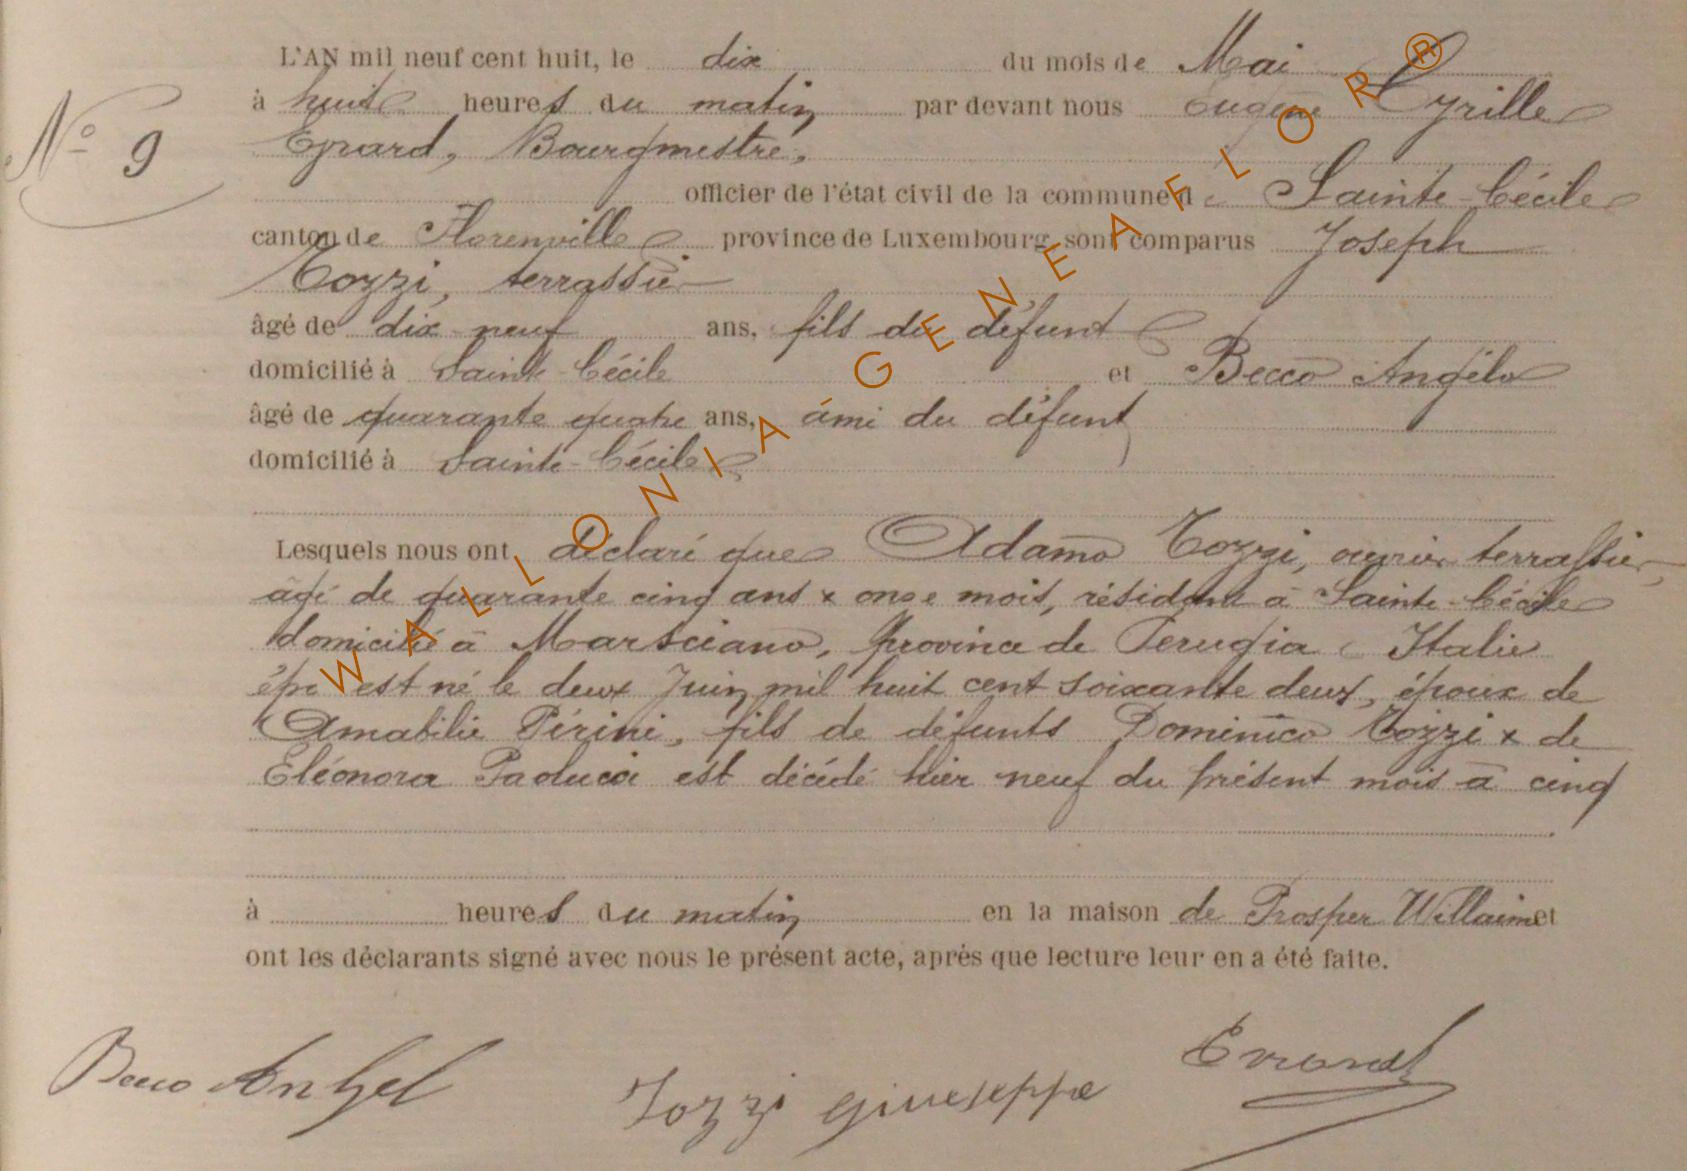 L'AN mil neuf cent huit, le dix du mois de Mai
à huit heures du matin par devant nous Eugène Cyrille
N° 9
Evrard, Bourgmestre,
officier de l'état civil de la commune de Sainte-Cécile
canton de Florenville province de Luxembourg sont comparus Joseph
Tozzi, terrassier
âgé de dix neuf ans, fils du défunt
domicilié à Sainte-Cécile et Becco Angélo
âgé de quarante quatre ans, ami du défunt
domicilié à Sainte-Cécile
Lesquels nous ont déclaré que Adamo Tozzi, ouvrier terrassier,
âgé de quarante cinq ans x onze mois, résidant à Sainte-Cécile
domicilié à Marsciano, province de Perugia Italie
est né le deux Juin mil huit cent soixante deux, époux de
Amabilie Périni, fils de défunts Dominico Tozzi x de
Eléonora Paolucci est décédé hier neuf du présent mois à cinq
à heures du matin en la maison de Prosper Willaime et
ont les déclarants signé avec nous le présent acte, après que lecture leur en a été faite.
Becco Anhel Tozzi Giuseppe Evrard
WALLONIA GENEAFLOR®